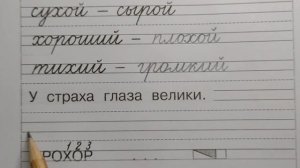 сухой – сырой
хороший – плохой
тихий – громкий
У страха глаза велики.
1 2 3
РОХОР